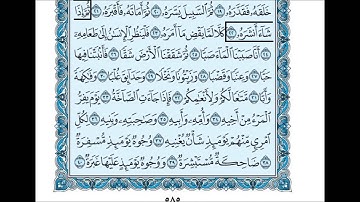 خَلَقَهُۥ فَقَدَّرَهُۥ ١٩ ثُمَّ ٱلسَّبِيلَ يَسَّرَهُۥ ٢٠ ثُمَّ أَمَاتَهُۥ فَأَقۡبَرَهُۥ ٢١ ثُمَّ إِذَا
شَآءَ أَنشَرَهُۥ ٢٢ كَلَّا لَمَّا يَقۡضِ مَآ أَمَرَهُۥ ٢٣ فَلۡيَنظُرِ ٱلۡإِنسَٰنُ إِلَىٰ طَعَامِهِۦٓ
٢٤ أَنَّا صَبَبۡنَا ٱلۡمَآءَ صَبّٗا ٢٥ ثُمَّ شَقَقۡنَا ٱلۡأَرۡضَ شَقّٗا ٢٦ فَأَنۢبَتۡنَا فِيهَا
حَبّٗا ٢٧ وَعِنَبٗا وَقَضۡبٗا ٢٨ وَزَيۡتُونٗا وَنَخۡلٗا ٢٩ وَحَدَآئِقَ غُلۡبٗا ٣٠ وَفَٰكِهَةٗ
وَأَبّٗا ٣١ مَّتَٰعٗا لَّكُمۡ وَلِأَنۡعَٰمِكُمۡ ٣٢ فَإِذَا جَآءَتِ ٱلصَّآخَّةُ ٣٣ يَوۡمَ يَفِرُّ
ٱلۡمَرۡءُ مِنۡ أَخِيهِ ٣٤ وَأُمِّهِۦ وَأَبِيهِ ٣٥ وَصَٰحِبَتِهِۦ وَبَنِيهِ ٣٦ لِكُلِّ
ٱمۡرِيٕٖ مِّنۡهُمۡ يَوۡمَئِذٖ شَأۡنٞ يُغۡنِيهِ ٣٧ وُجُوهٞ يَوۡمَئِذٖ مُّسۡفِرَةٞ
٣٨ ضَاحِكَةٞ مُّسۡتَبۡشِرَةٞ ٣٩ وَوُجُوهٞ يَوۡمَئِذٍ عَلَيۡهَا غَبَرَةٞ ٤٠
٥٨٥